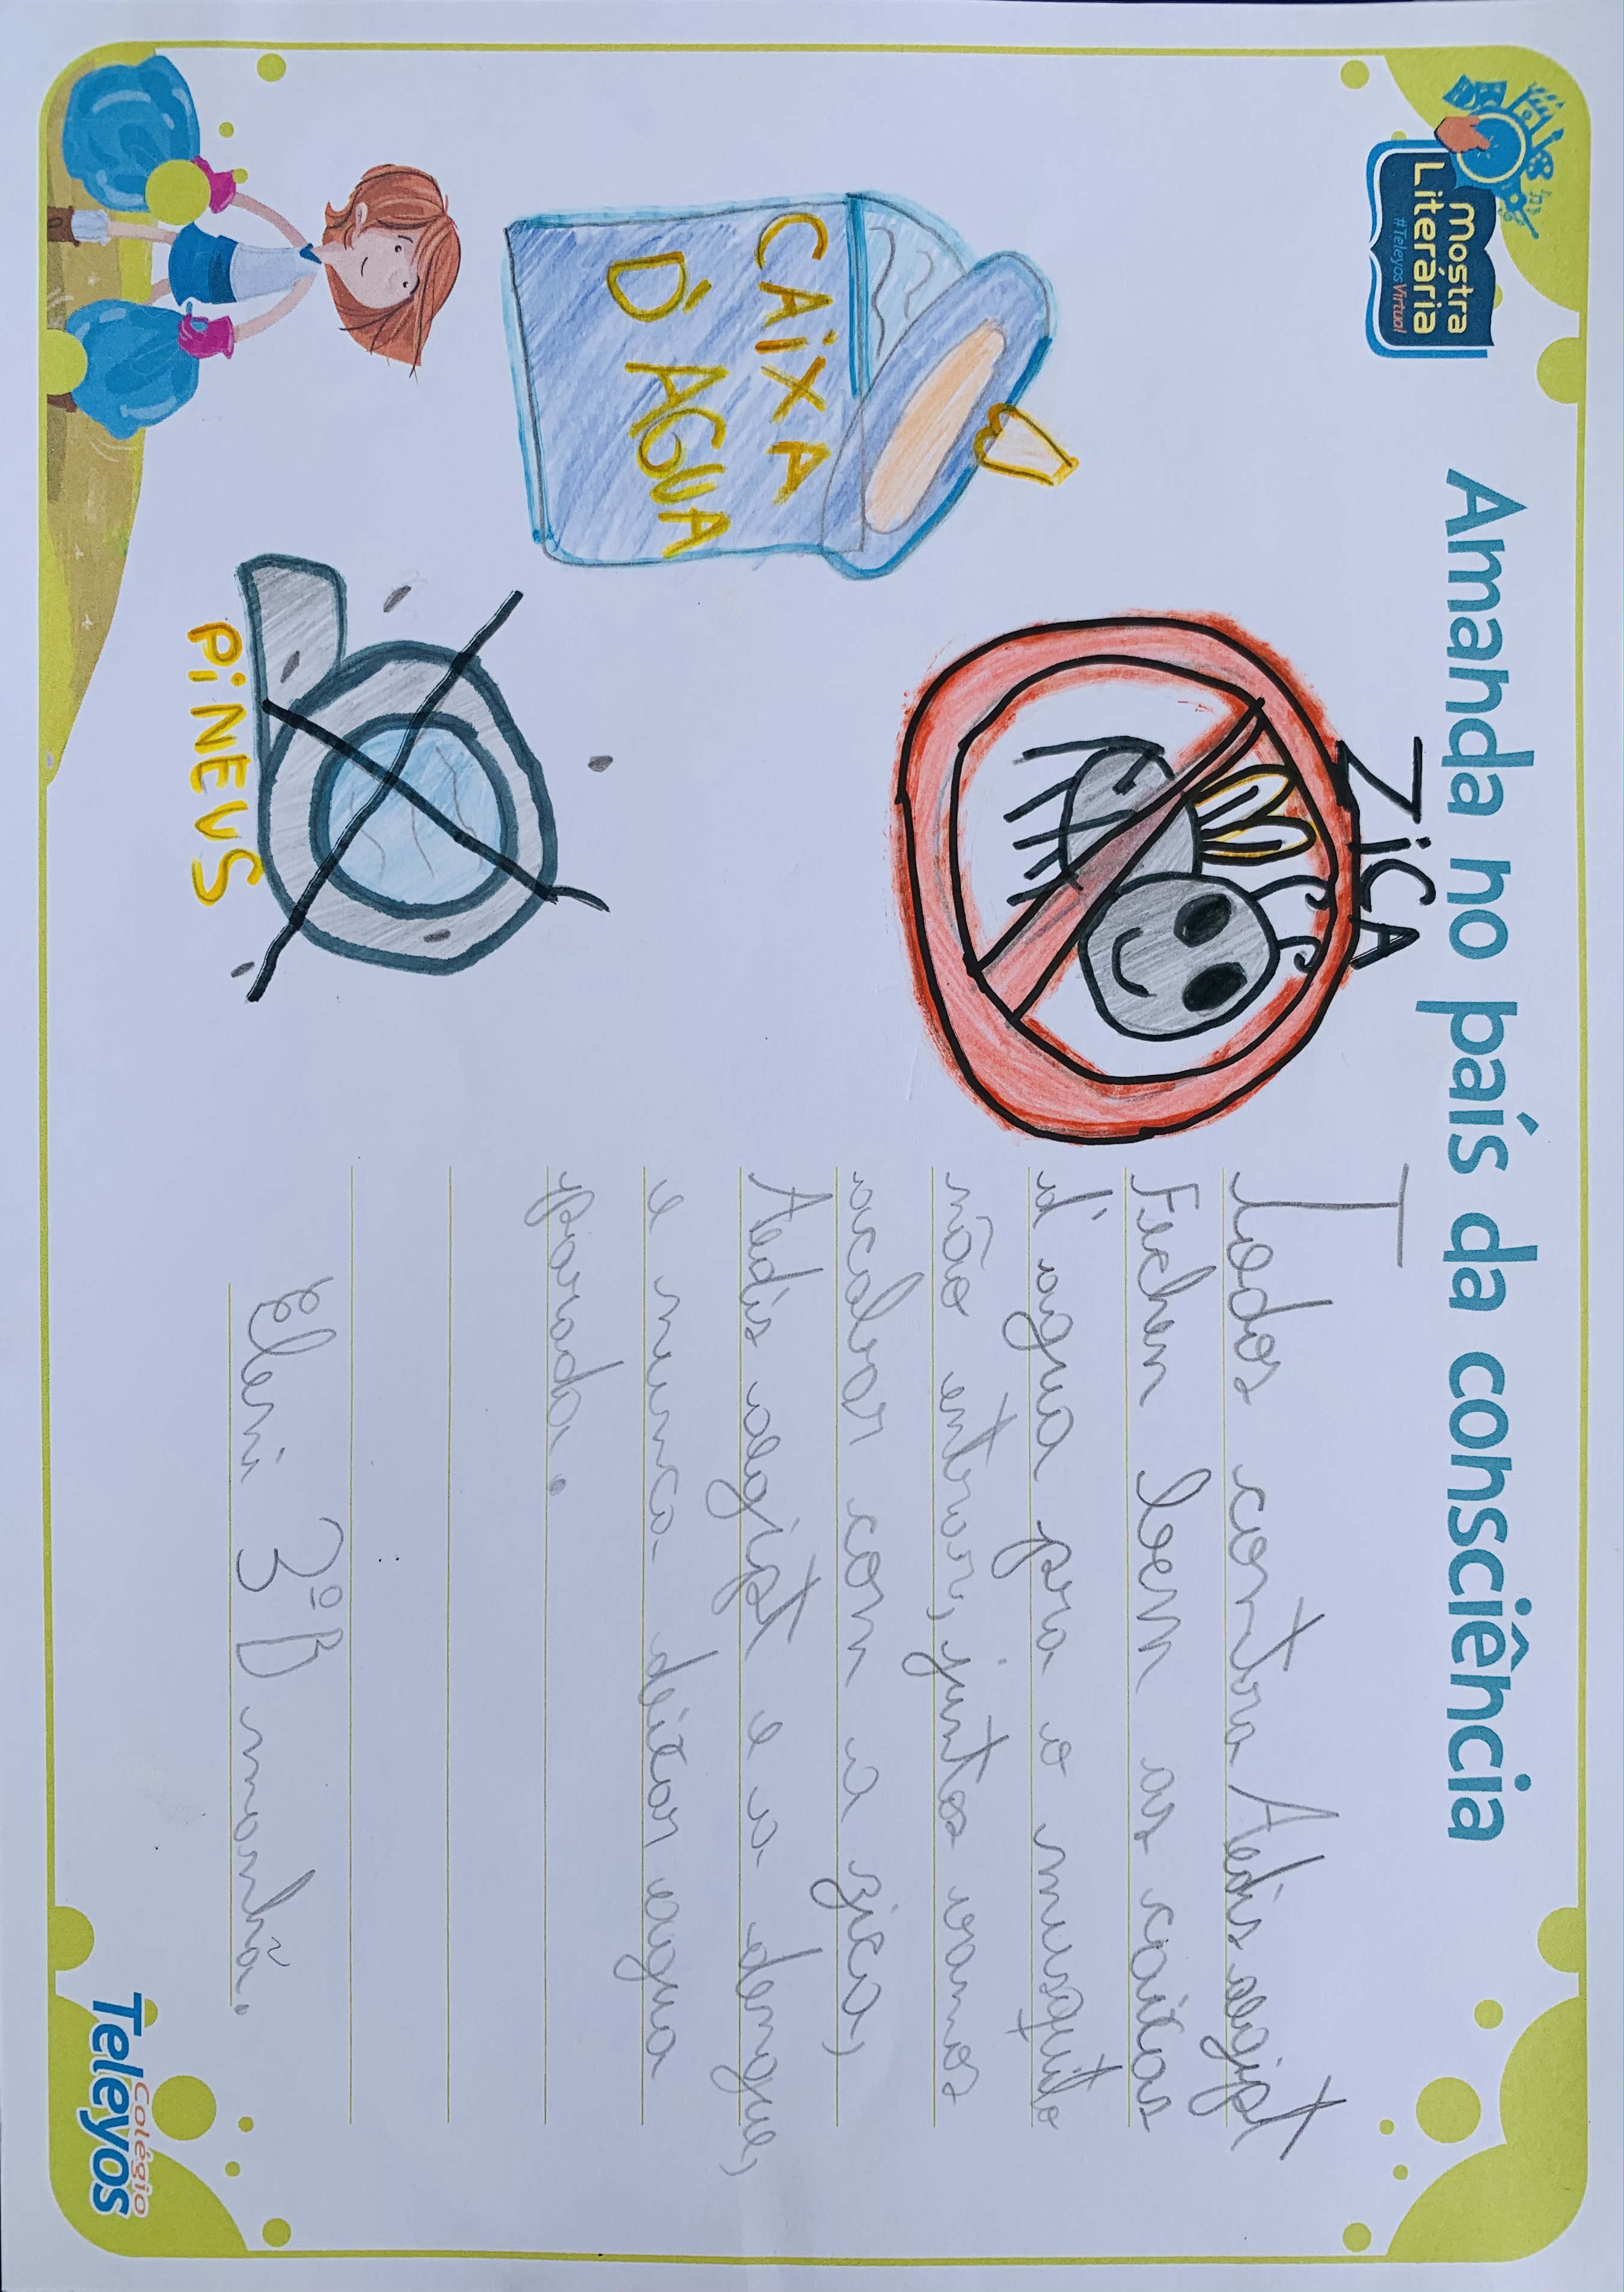 Mostra
Literária
#TeleyosVirtual
Amanda no país da consciência
CAiXA
D'ÁGUA
ZiCA
PiNEUS
Todos contra Aedis aegipt
Fichen bem as caixas
d'agua pra o musquito
não entrar, juntos vamos
acabar con a zica,
Aedis aegipt e a dengue,
e nunca deixar eagua
parada.
Eleni 3º B manhã.
Colégio
Teleyos